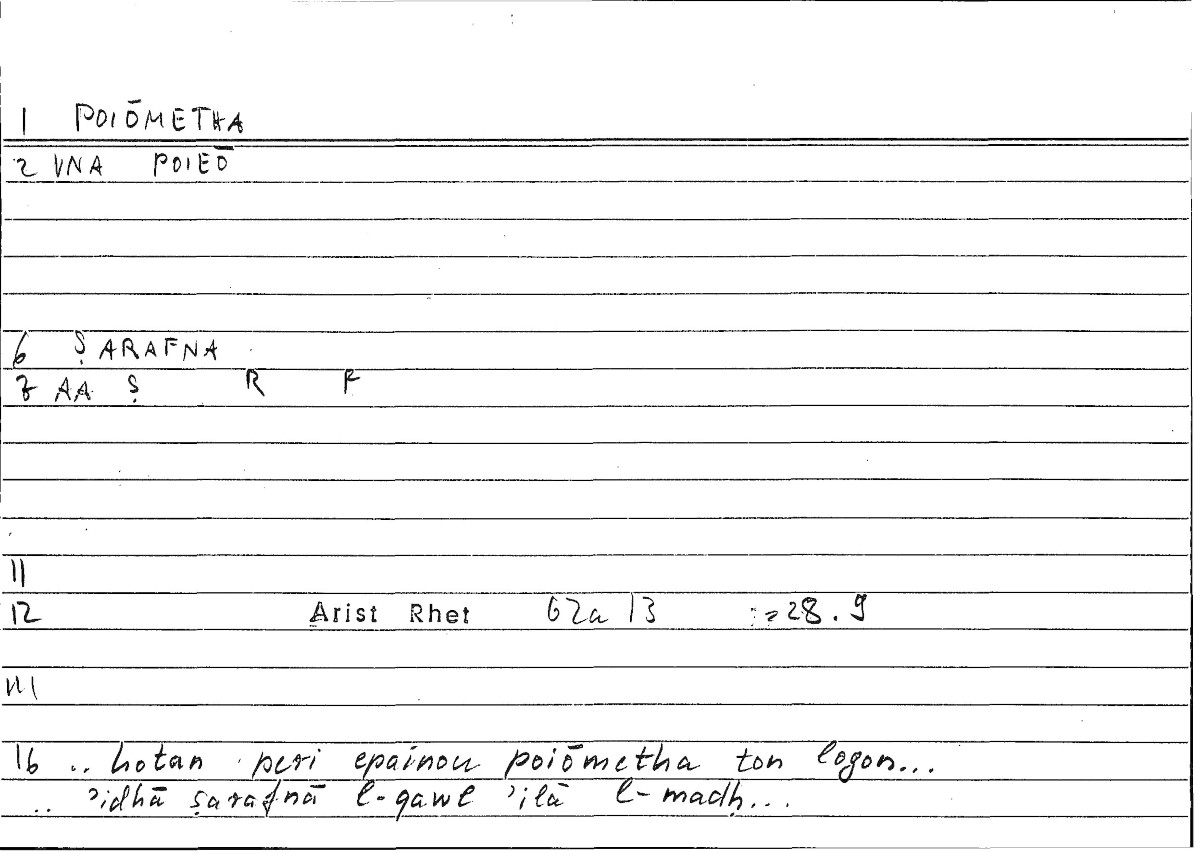 1 POIŌMETHA
2 VNA POIEŌ
6 ṢARAFNA
7 AA Ṣ R F
11
12 Arist Rhet 62a 13 := 28.9
16 .. hotan peri epainou poiōmetha ton logon...
.. ʾidhā ṣarafnā l-qawl ʾilā l-madḥ...